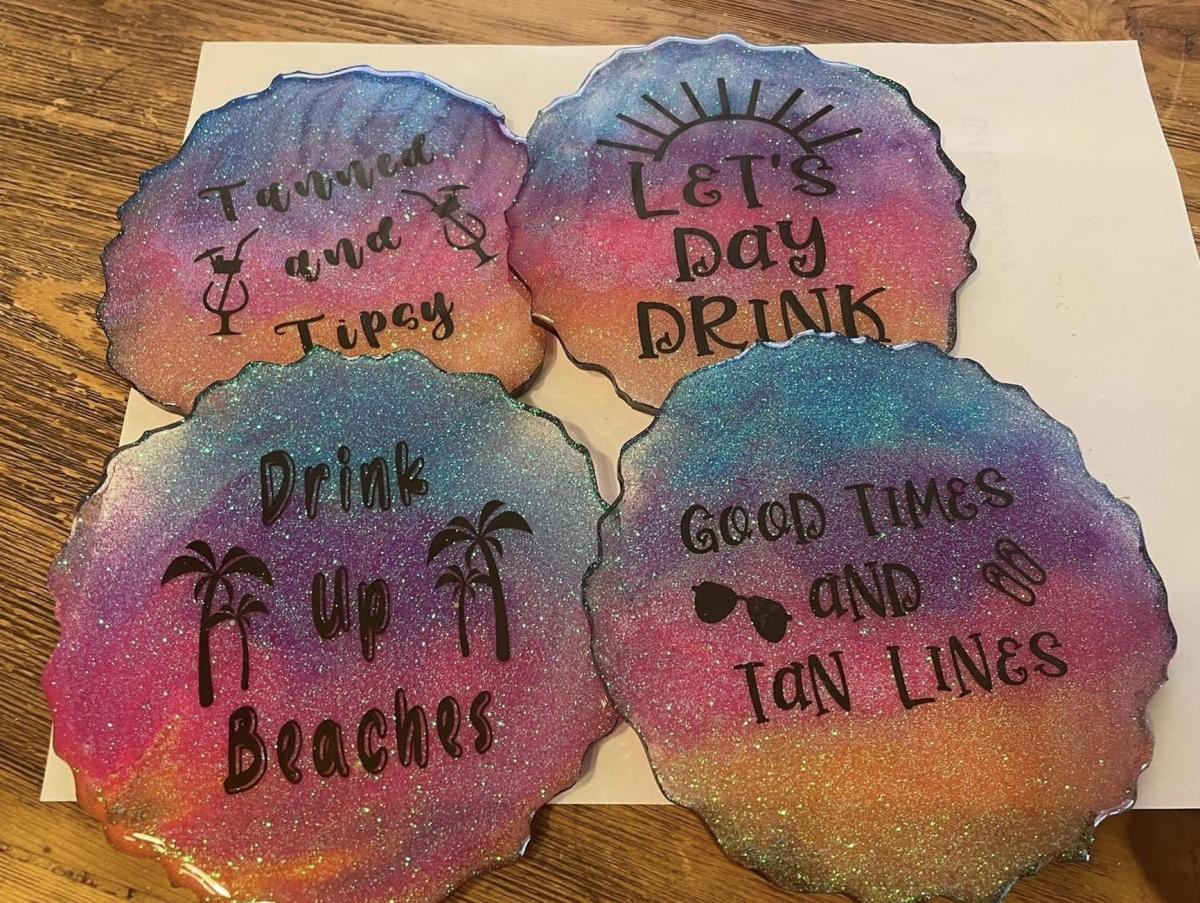 Tanned
and
Tipsy
LET'S
Day
DRINK
Drink
Up
Beaches
GOOD TIMES
aND
TaN LINES